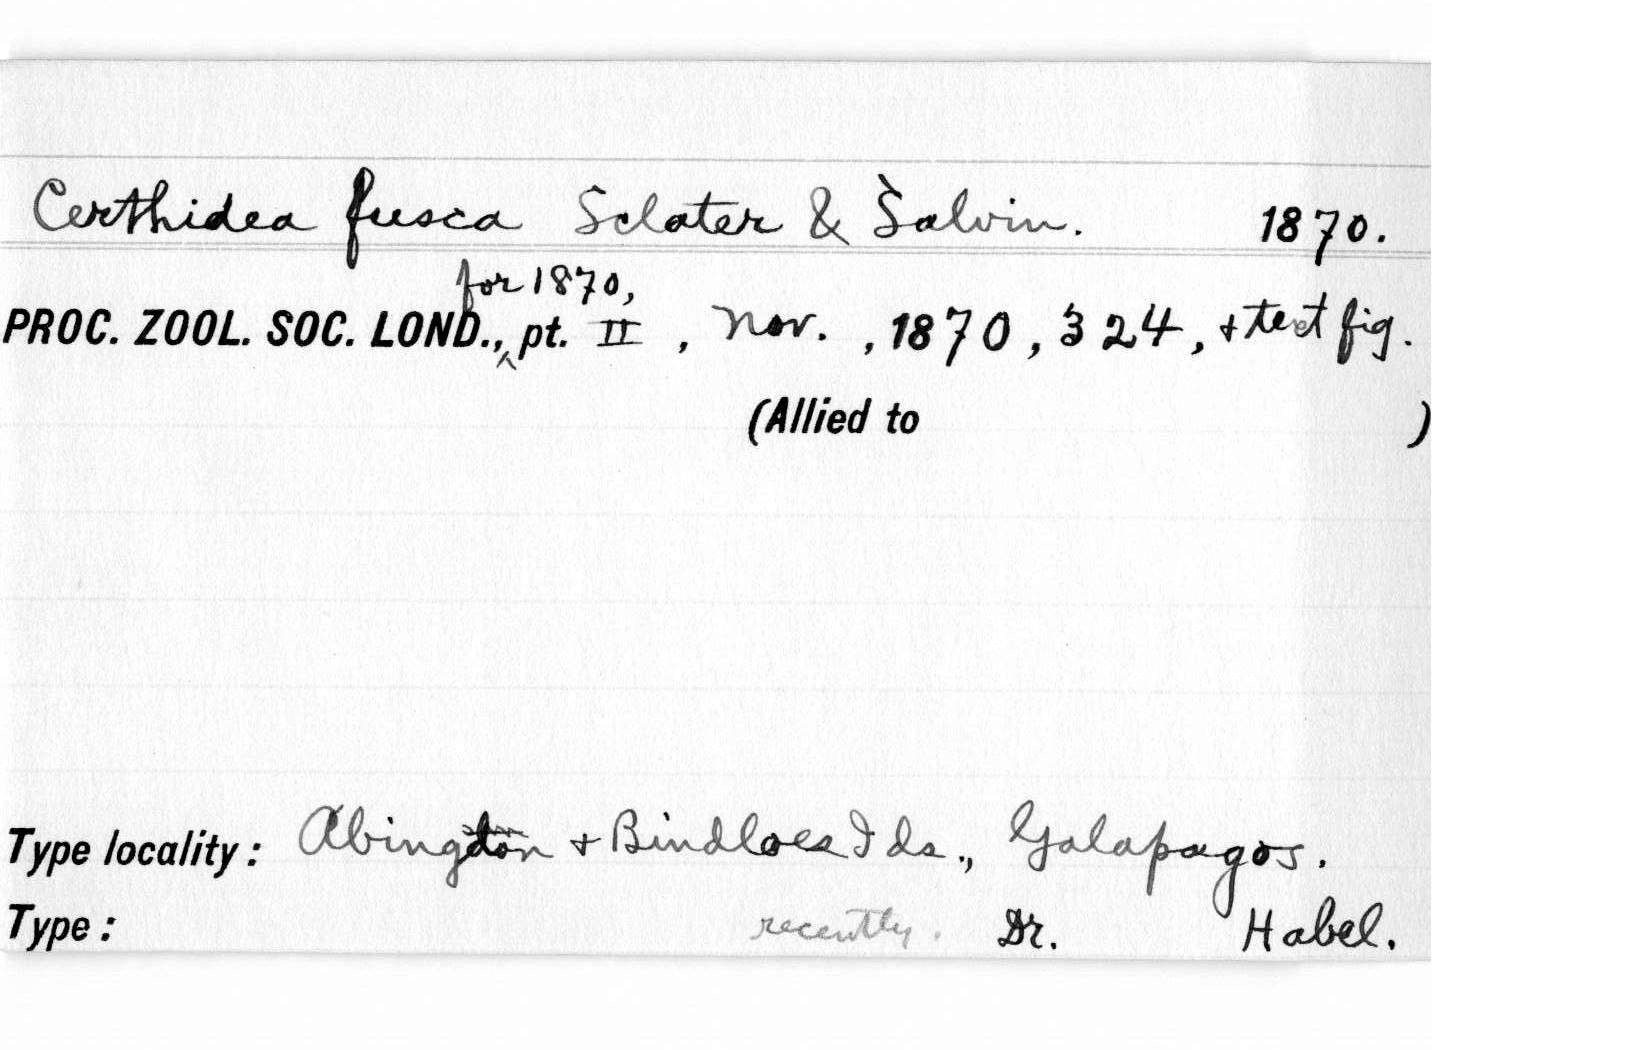 Certhidea fusca Sclater & Salvin. 1870.
for 1870,
PROC. ZOOL. SOC. LOND.,^ pt. II , Nov. , 1870 , 324 , + text fig.
(Allied to )
Type locality : Abingdon + Bindloes Ids., Galapagos.
Type : recently. Dr. Habel.